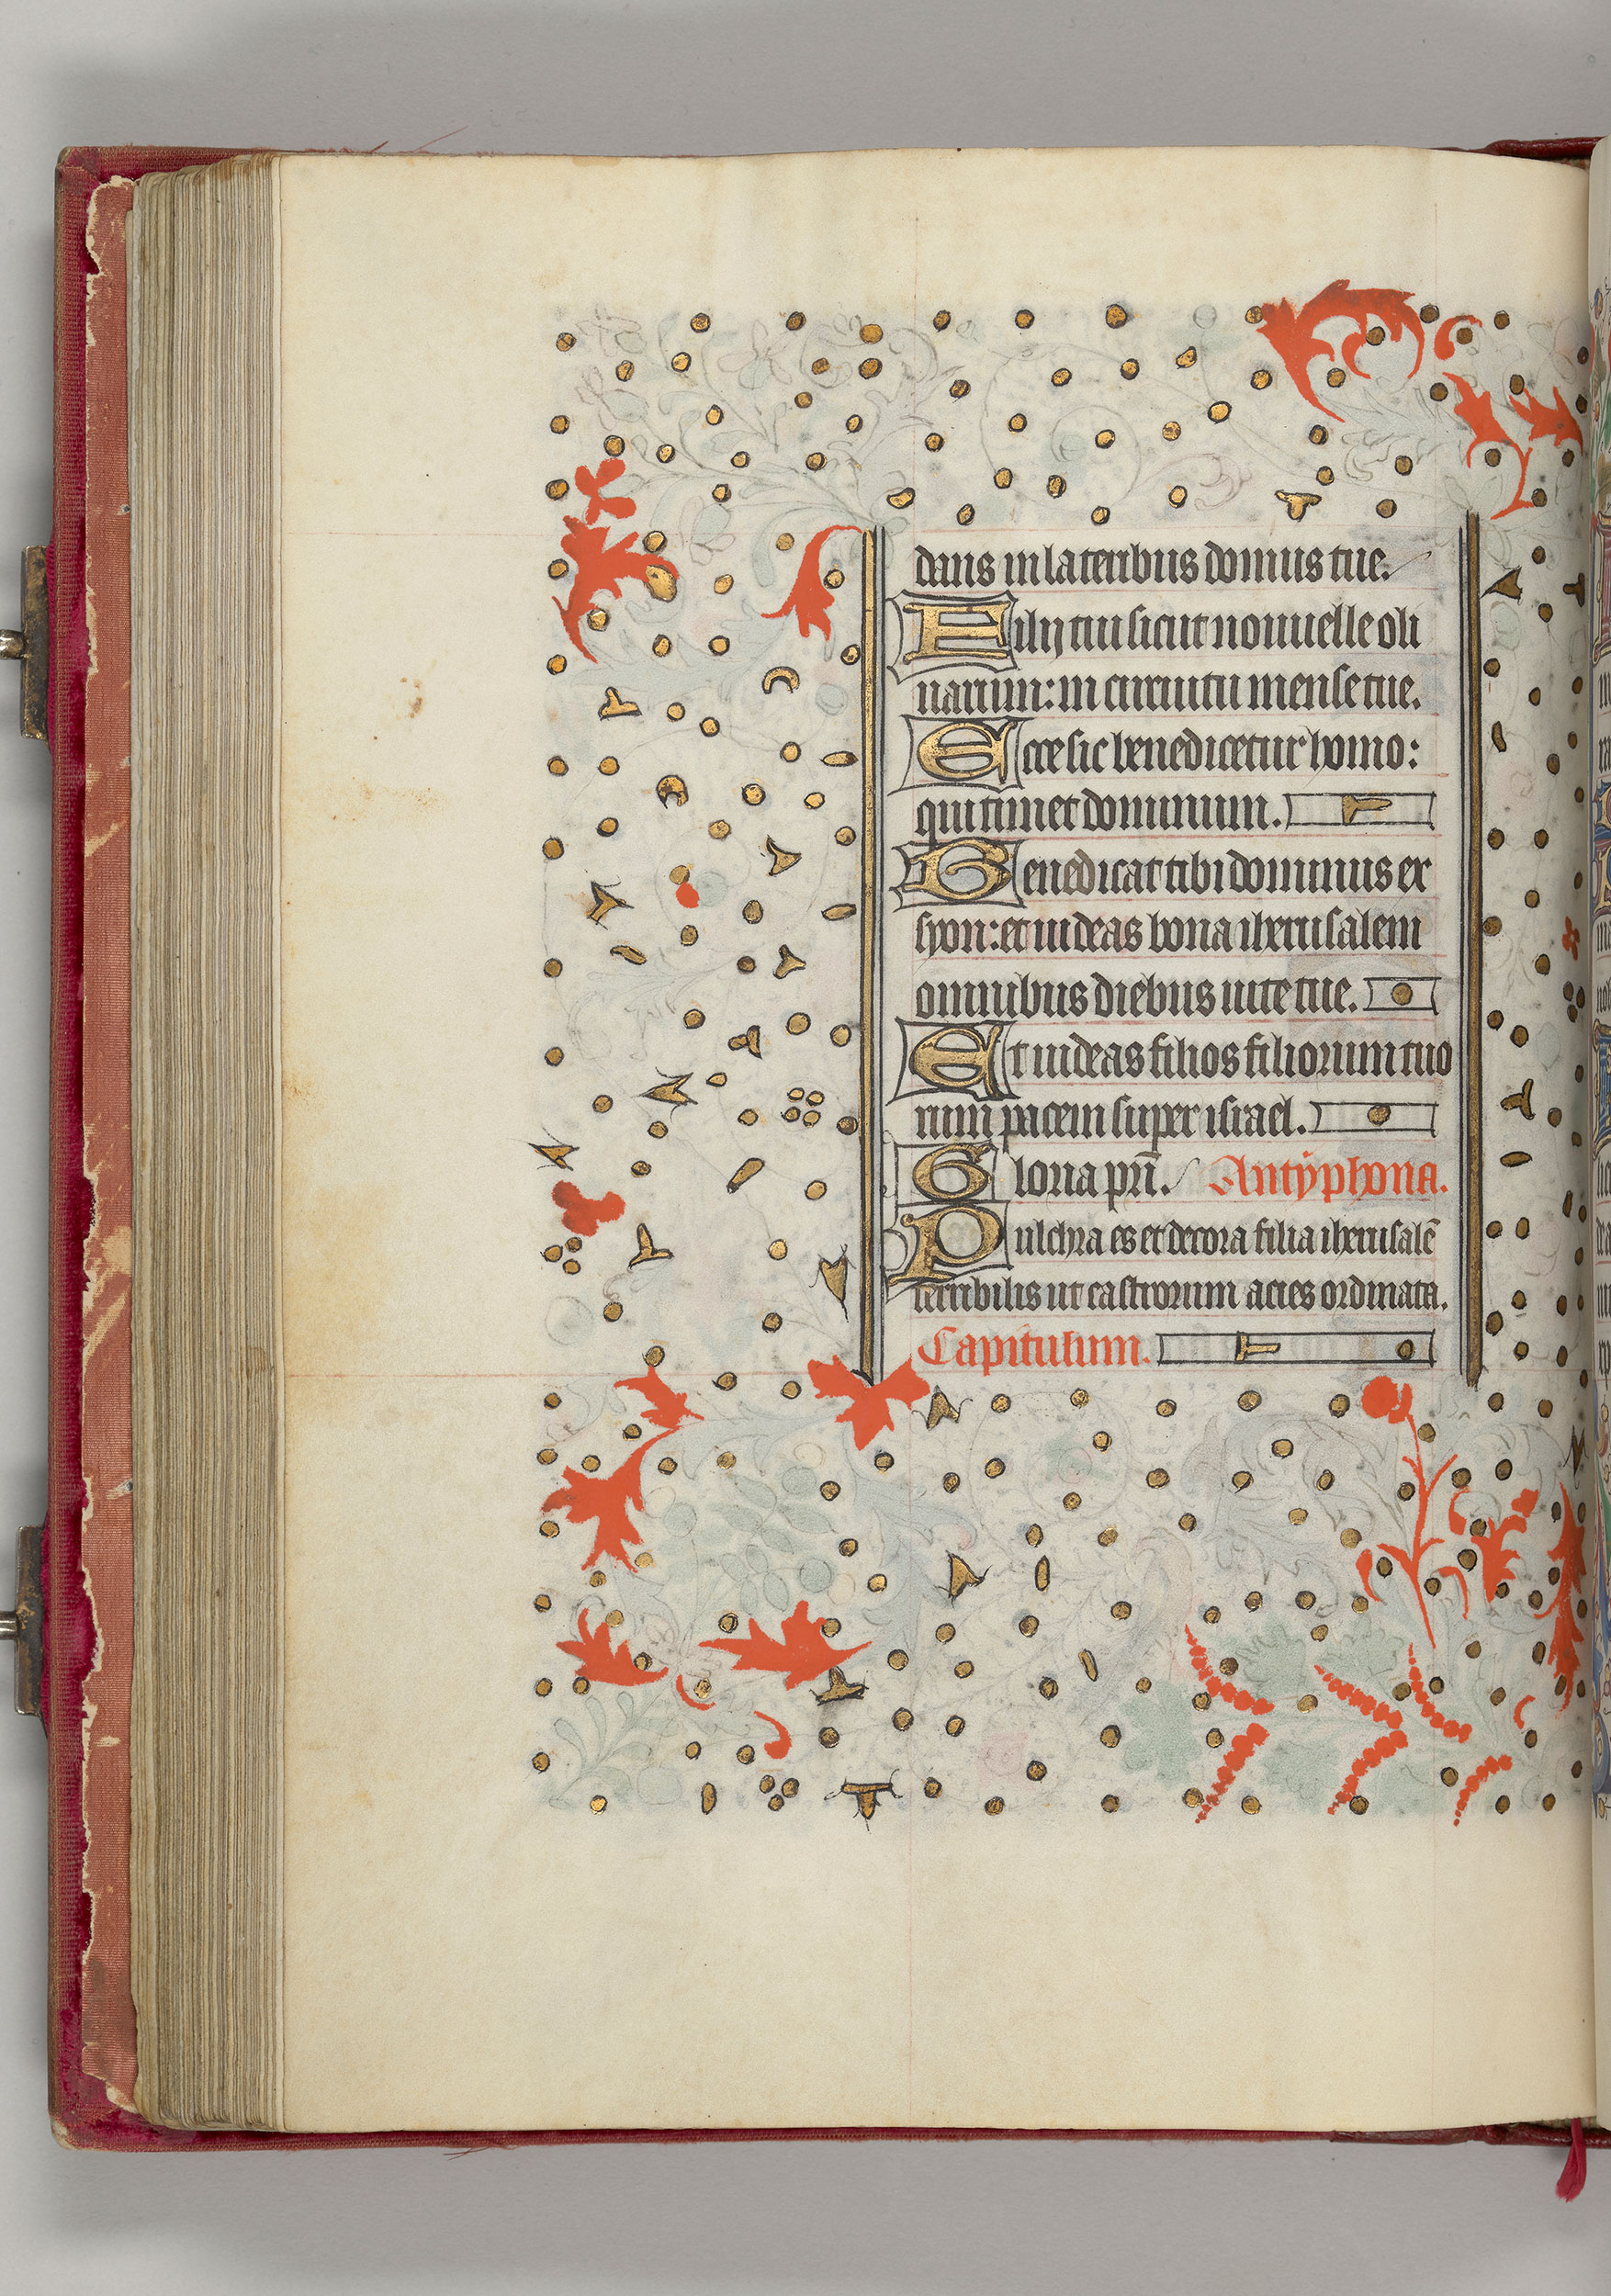 dans in lateribus domus tue.
Filij tui sicut nouuelle oli
uarum: in circuitu mense tue.
Ecce sic benedicetur homo:
qui timet dominum.
Benedicat tibi dominus ex
syon: et uideas bona iherusalem
omnibus diebus uite tue.
Et uideas filios filiorum tuo
rum pacem super israel.
Gloria pr̄i. Antyphona.
Pulchra es et decora filia iherusalē
terribilis ut castrorum acies ordinata.
Capitulum.